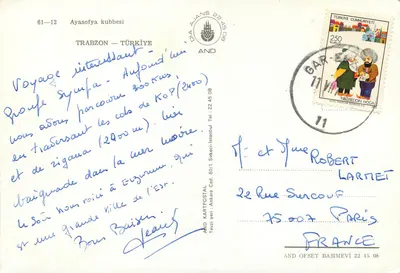 61-12 Ayasofya kubbesi
TRABZON - TÜRKİYE
DIA AJANS 22 45 08
AND
TÜRKİYE CUMHURİYETİ
250
GAR
11
11
Voyage intéressant -
Groupe sympa - Aujourd'hui
nous avons parcouru 300 kms,
en traversant les cols de KOP (2400)
et de zigana (2000 m). Hier
baignade dans la mer noire.
Le soir nous voici à Erzurum, qui
est une grande ville de l'Est.
Bons Baisers
AND KARTPOSTAL
M. et Mme ROBERT
LARMET
22 Rue SURCOUF
75007 PARIS
FRANCE
AND OFSET BASIMEVİ 22 45 08